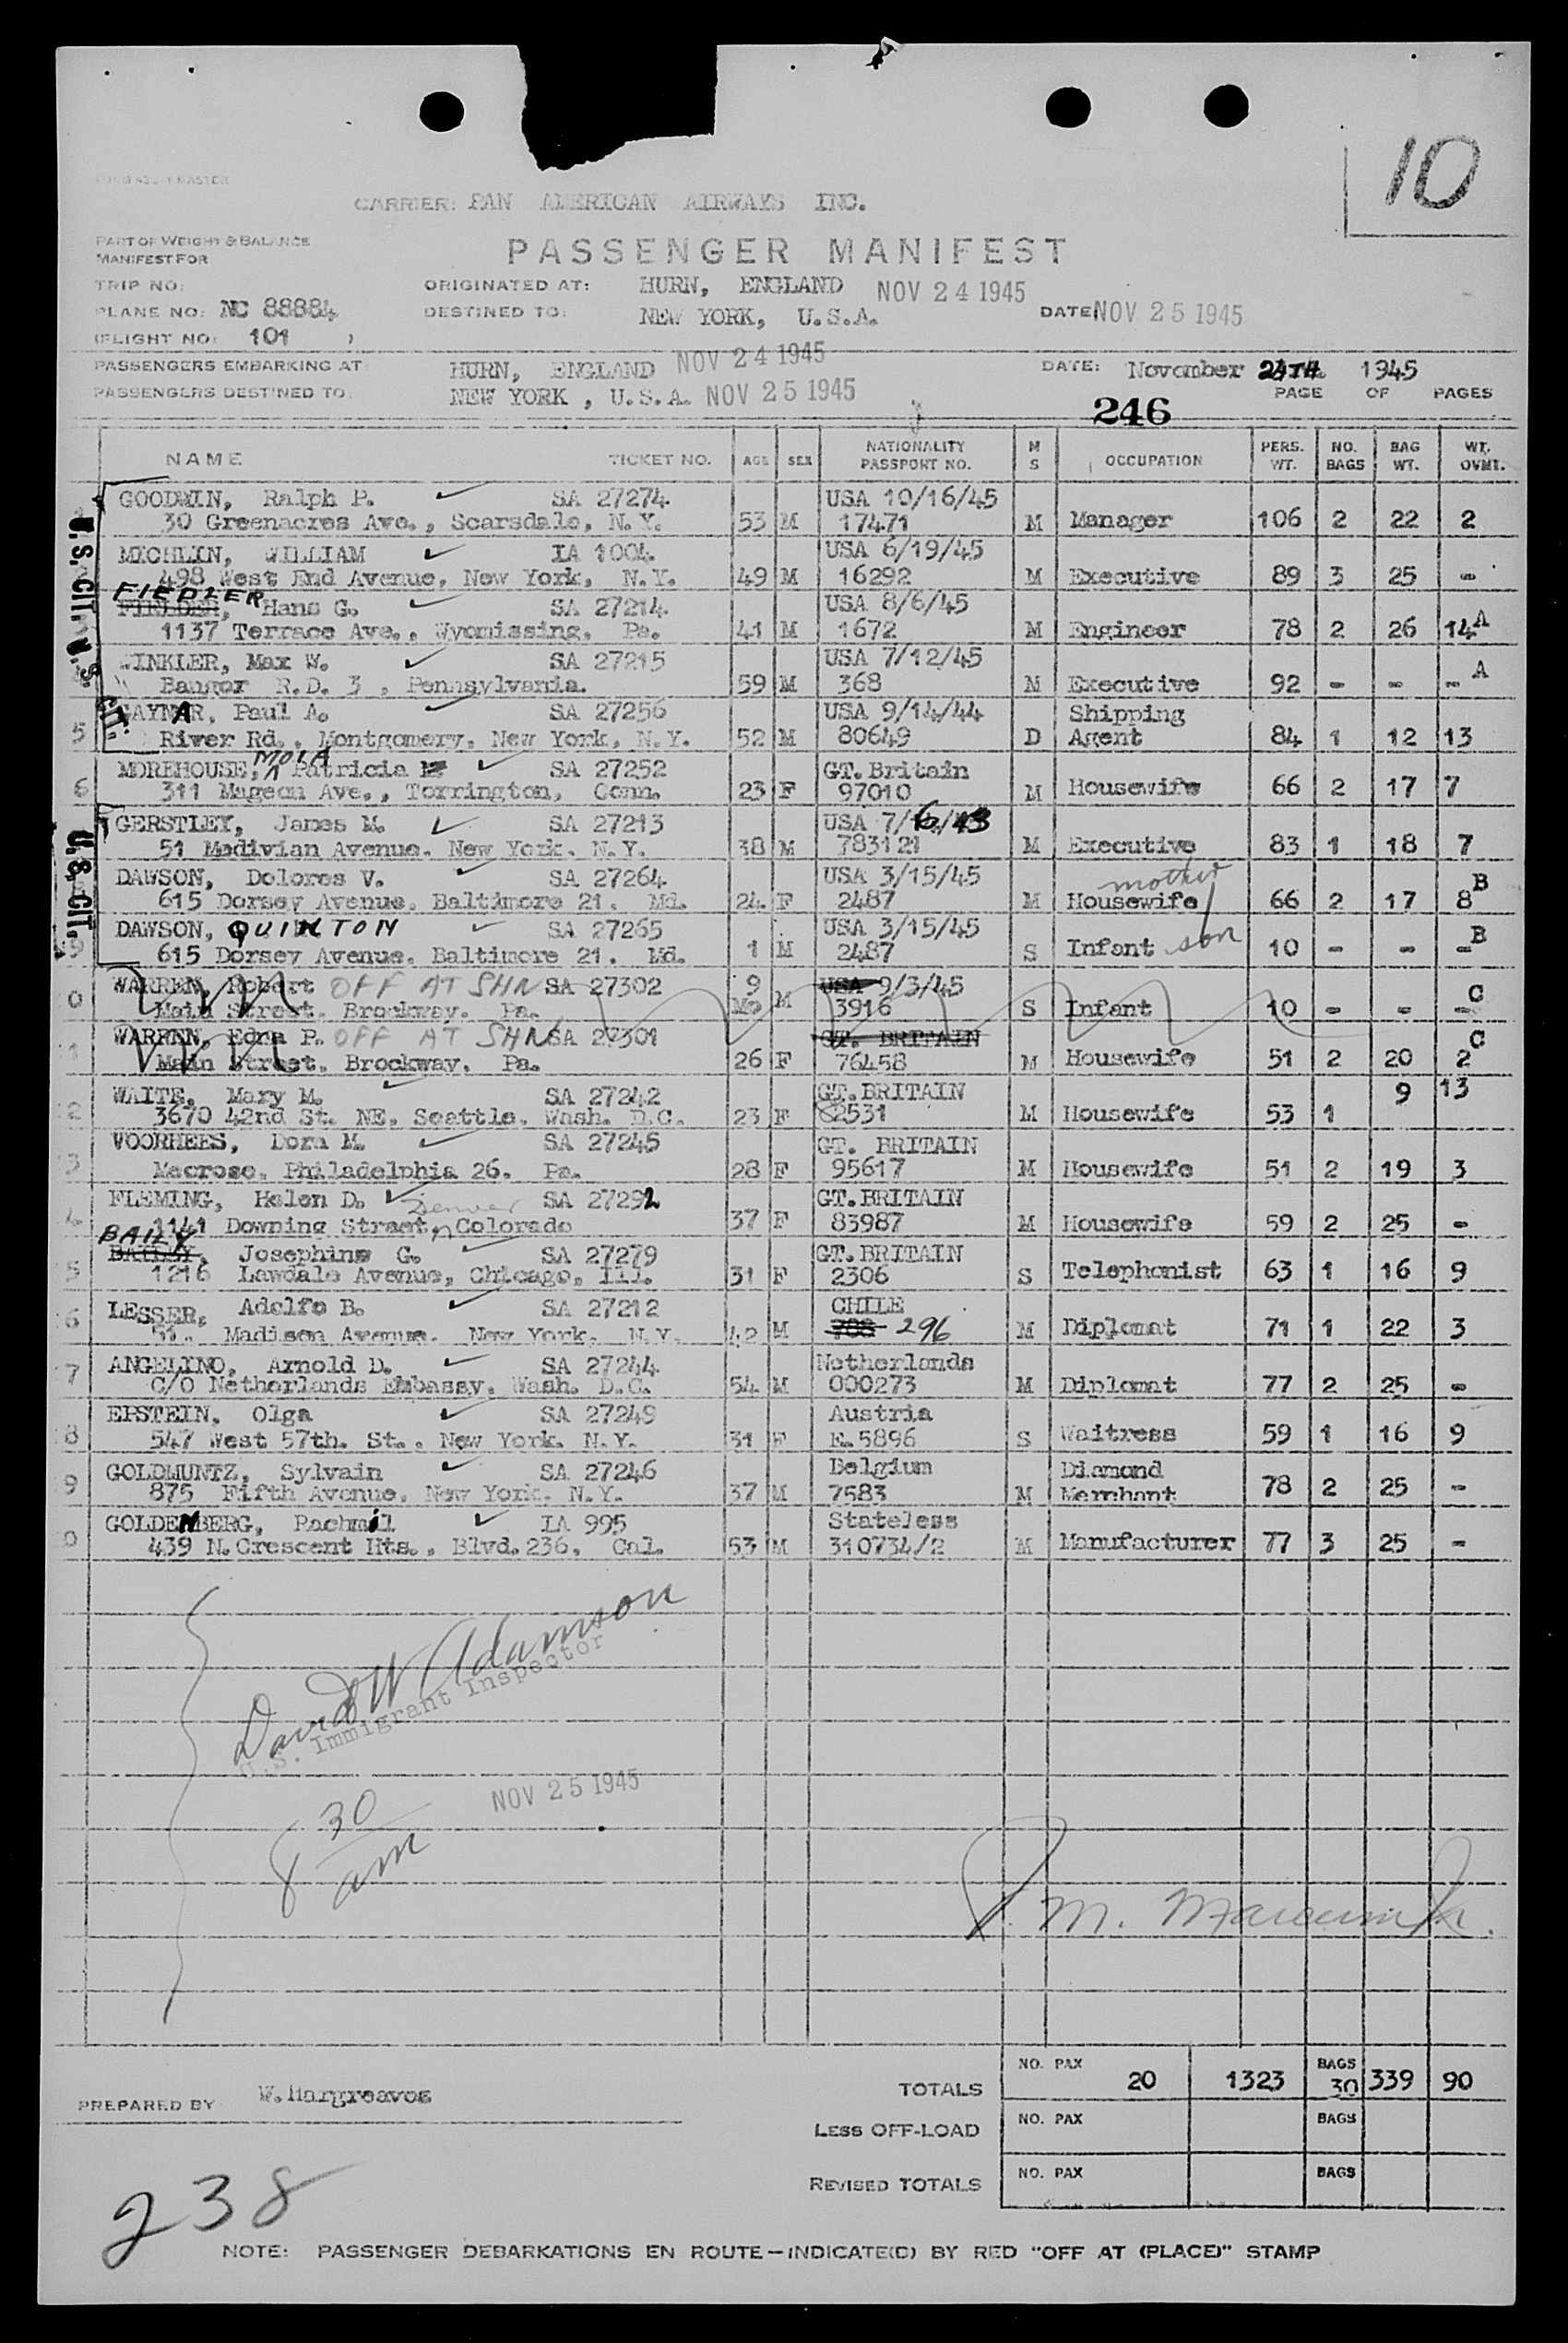 10
CARRIER: PAN AMERICAN AIRWAYS INC.
PART OF WEIGHT & BALANCE
MANIFEST FOR
PASSENGER MANIFEST
TRIP NO:
ORIGINATED AT: HURN, ENGLAND NOV 24 1945
PLANE NO: NC 88884
DESTINED TO: NEW YORK, U.S.A. DATE NOV 25 1945
(FLIGHT NO: 101 )
PASSENGERS EMBARKING AT HURN, ENGLAND NOV 24 1945 DATE: November 24TH 1945
PASSENGERS DESTINED TO NEW YORK , U.S.A. NOV 25 1945 246 PAGE OF PAGES
NAME TICKET NO. AGE SEX NATIONALITY PASSPORT NO. M S OCCUPATION PERS. WT. NO. BAGS BAG WT. WT. OVMT.
U.S. CIT. U.S. CIT.
GOODWIN, Ralph P. SA 27274 USA 10/16/45
30 Greenacres Ave., Scarsdale, N.Y. 53 M 17471 M Manager 106 2 22 2
MICHLIN, WILLIAM IA 1004 USA 6/19/45
498 West End Avenue, New York, N.Y. 49 M 16292 M Executive 89 3 25 -
FIEDLER
FIELDER, Hans G. SA 27214 USA 8/6/45
1137 Terrace Ave., Wyomissing, Pa. 41 M 1672 M Engineer 78 2 26 14 A
WINKLER, Max W. SA 27215 USA 7/12/45
Bangor R.D. 3 , Pennsylvania. 59 M 368 M Executive 92 - - - A
GAYNAR, Paul A. SA 27256 USA 9/14/44 Shipping
5 River Rd., Montgomery, New York, N.Y. 52 M 80649 D Agent 84 1 12 13
MOREHOUSE, MOLA Patricia SA 27252 GT. Britain
6 311 Mageon Ave., Torrington, Conn. 23 F 97010 M Housewife 66 2 17 7
U.S. CIT.
GERSTLEY, James M. SA 27213 USA 7/6/43
51 Madivian Avenue. New York. N.Y. 38 M 783121 M Executive 83 1 18 7
DAWSON, Dolores V. SA 27264 USA 3/15/45 mother
615 Dorsey Avenue. Baltimore 21. Md. 24 F 2487 M Housewife 66 2 17 8 B
DAWSON, QUINTON SA 27265 USA 3/15/45
9 615 Dorsey Avenue. Baltimore 21. Md. 1 M 2487 S Infant son 10 - - - B
WARREN, Robert OFF AT SHN SA 27302 USA 9/3/45
0 Main Street. Brockway. Pa. 9 Mo M 3916 S Infant 10 - - - C
WARREN, Edna P. OFF AT SHN SA 27301 GT. BRITAIN
1 Main Street. Brockway. Pa. 26 F 76458 M Housewife 51 2 20 2 C
WAITE, Mary M. SA 27242 GT. BRITAIN
2 3670 42nd St. NE. Seattle. Wash. D.C. 23 F 82531 M Housewife 53 1 9 13
VOORHEES, Dora M. SA 27245 GT. BRITAIN
3 Macrose. Philadelphia 26. Pa. 28 F 95617 M Housewife 51 2 19 3
FLEMING, Helen D. Denver SA 27292 GT. BRITAIN
4 1141 Downing Street, Colorado 37 F 83987 M Housewife 59 2 25 -
BAILY
BAILEY, Josephine G. SA 27279 GT. BRITAIN
5 1216 Lawdale Avenue, Chicago, Ill. 31 F 2306 S Telephonist 63 1 16 9
LESSER, Adolfo B. SA 27212 CHILE
6 51. Madison Avenue. New York. N.Y. 42 M 708 296 M Diplomat 71 1 22 3
ANGELINO, Arnold D. SA 27244 Netherlands
7 C/O Netherlands Embassy. Wash. D.C. 54 M 000273 M Diplomat 77 2 25 -
EPSTEIN, Olga SA 27249 Austria
8 547 West 57th. St., New York. N.Y. 31 F E.5896 S Waitress 59 1 16 9
GOLDMUNTZ, Sylvain SA 27246 Belgium Diamond
9 875 Fifth Avenue. New York. N.Y. 37 M 7583 M Merchant 78 2 25 -
GOLDENBERG, Rachmil IA 995 Stateless
0 439 N.Crescent Hts., Blvd.236, Cal. 53 M 310734/2 M Manufacturer 77 3 25 -
David W Adamson
U.S. Immigrant Inspector
NOV 25 1945
8 30 am
TOTALS NO. PAX 20 1323 BAGS 30 339 90
PREPARED BY W.Hargreaves
LESS OFF-LOAD NO. PAX BAGS
REVISED TOTALS NO. PAX BAGS
238
NOTE: PASSENGER DEBARKATIONS EN ROUTE—INDICATE(D) BY RED "OFF AT (PLACE)" STAMP